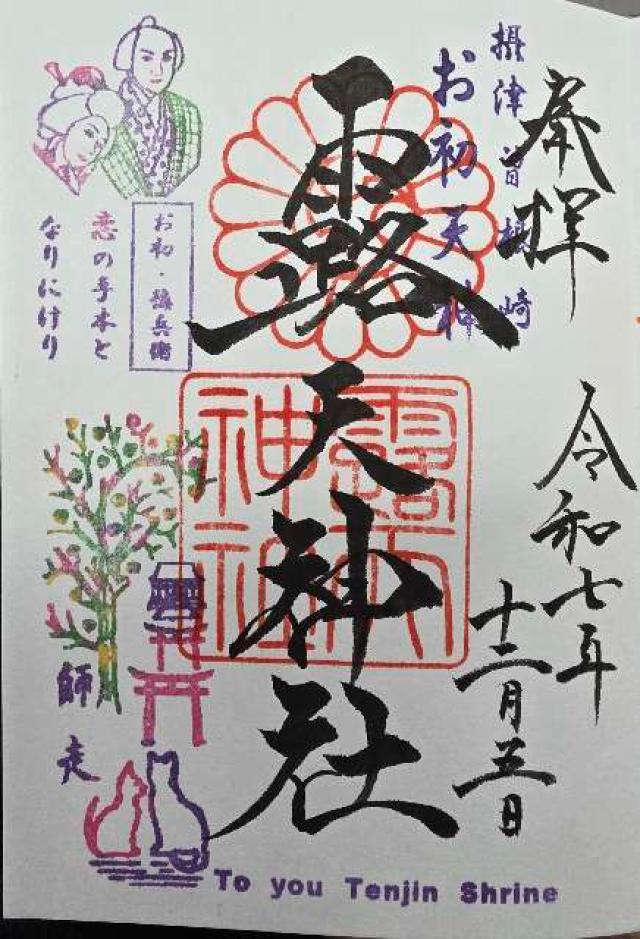 奉拝
令和七年
十二月五日
摂津曽根崎
お初天神
露天神社
露天
神社
お初・徳兵衛
恋の手本と
なりにけり
師走
To you Tenjin Shrine